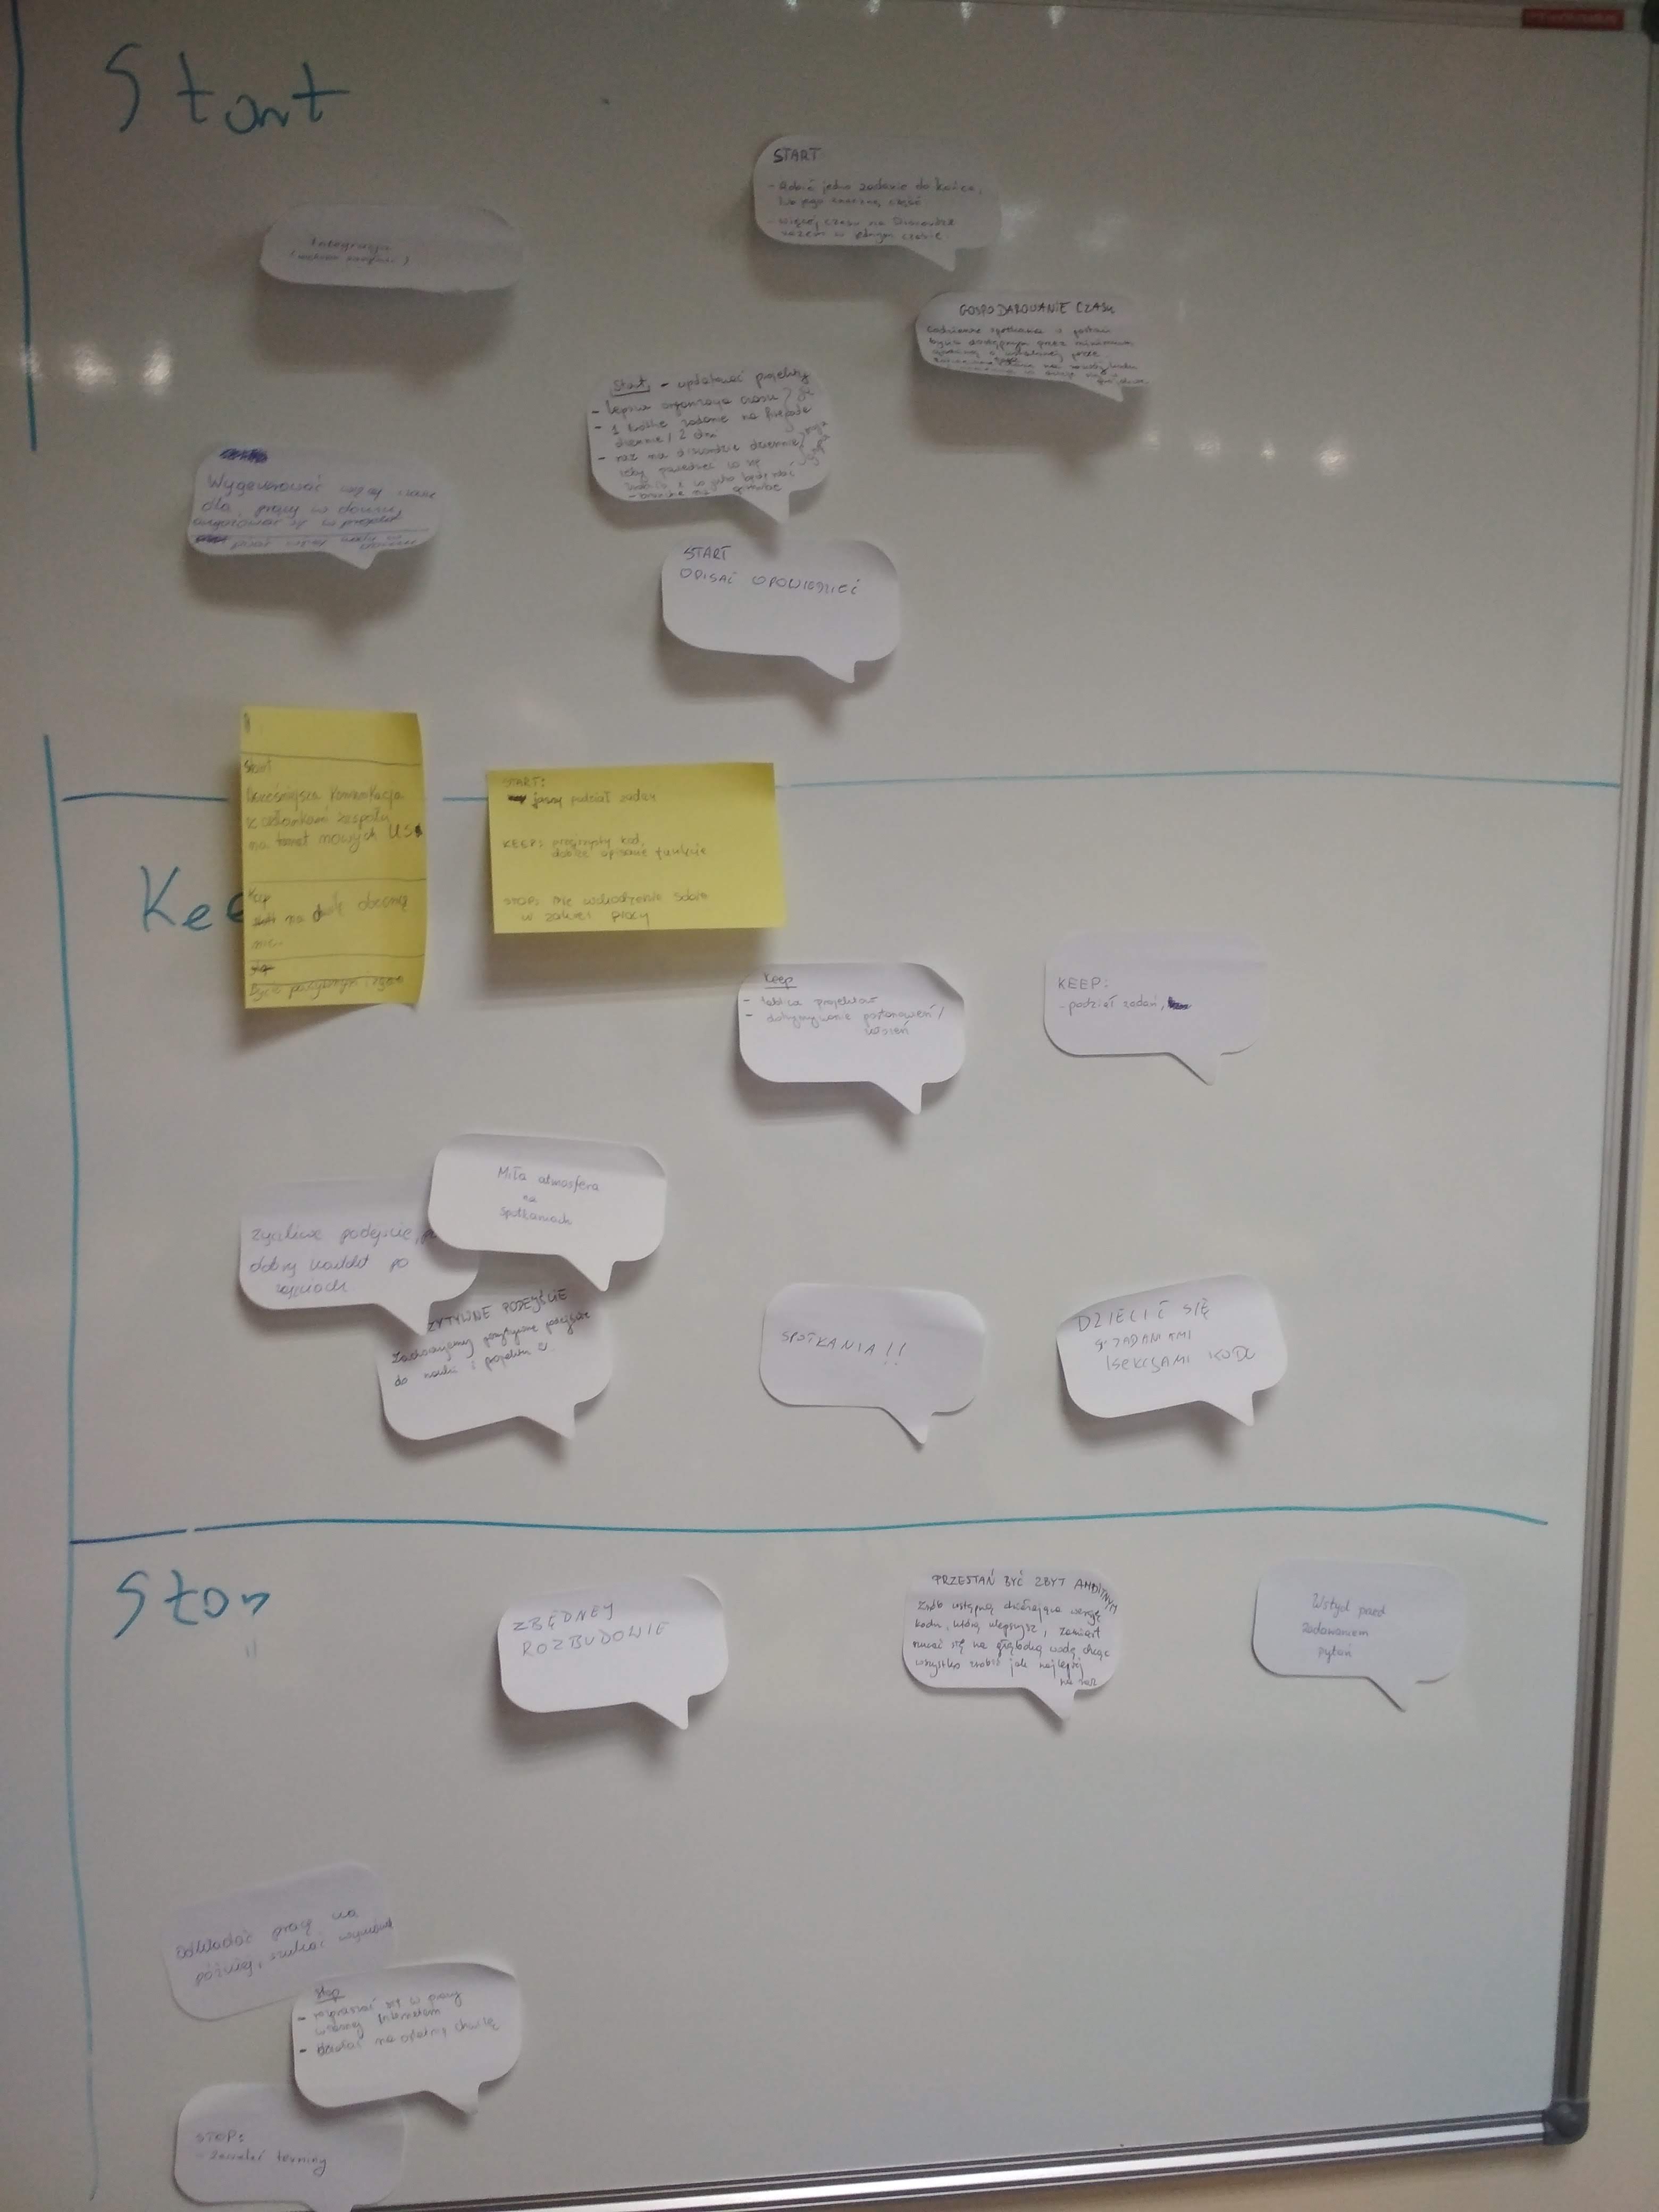 Start
START
- Robić jedno zadanie do końca,
lub jego znaczną część
- więcej czasu na Discordzie
razem w jednym czasie.
Integracja
GOSPODAROWANIE CZASU
być dostępnym przez minimum
Start - updatować projekty
- lepsza organizacja czasu
- 1 krótkie zadanie na
dziennie / 2 dni
- raz na discordzie dziennie
żeby powiedzieć co się
Wygenerować więcej czasu
dla pracy w domu,
angażować się w projekt
START
OPISAĆ OPOWIEDZIEĆ
Start
Wcześniejsza komunikacja
z członkami zespołu
na temat nowych US
Keep
na chwilę obecną
nic.
Być pasywnym
START:
jasny podział zadań
KEEP: przejrzysty kod,
dobrze opisane funkcje
STOP: nie wchodzenie sobie
w zakres pracy
Keep
Keep
- tablica projektów
- dotrzymywanie postanowień /
KEEP:
- podział zadań,
Miła atmosfera
na
spotkaniach
życzliwe podejście,
dobry kontakt po
zajęciach
ZYTYWNE PODEJŚCIE
Zachowajmy pozytywne podejście
do nauki i projektu
SPOTKANIA!!
DZIELIĆ SIĘ
ZADANIAMI
I SEKCJAMI KODU
Stop
ZBĘDNEJ
ROZBUDOWIE
PRZESTAŃ BYĆ ZBYT AMBITNYM
Zrób wstępną działającą wersję
kodu, którą ulepszysz, zamiast
rzucać się na głęboką wodę chcąc
wszystko zrobić jak najlepiej
na raz
Wstyd przed
zadawaniem
pytań
Odkładać pracę na
później, szukać wymówek
Stop
- rozpraszać się w pracy
własnej Internetem
- na ostatnią chwilę
STOP:
- zawalać terminy